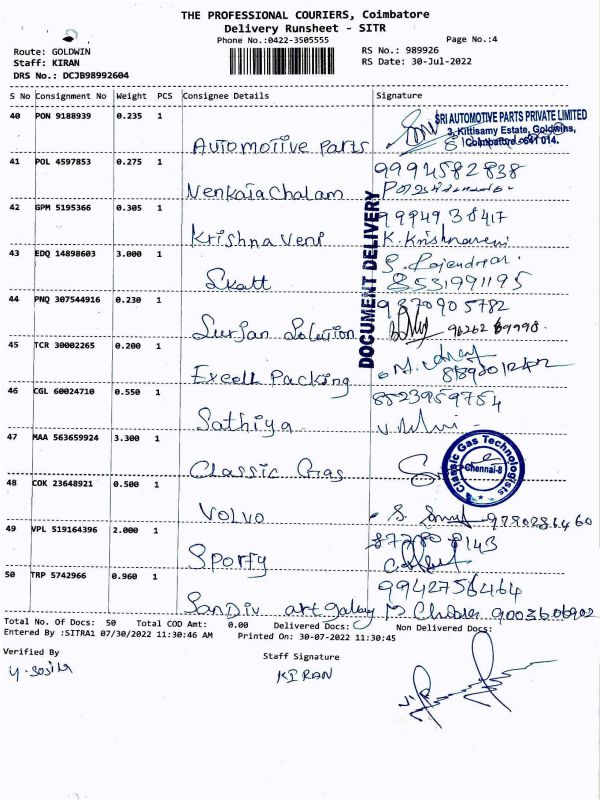 THE PROFESSIONAL COURIERS, Coimbatore
Delivery Runsheet - SITR
Phone No.:0422-3505555
Page No.:4
Route: GOLDWIN
RS No.: 989926
Staff: KIRAN
RS Date: 30-Jul-2022
DRS No.: DCJB98992604
S No Consignment No Weight PCS Consignee Details Signature
40 PON 9188939 0.235 1
SRI AUTOMOTIVE PARTS PRIVATE LIMITED
3, Kittisamy Estate, Goldwins,
Coimbatore - 641 014.
Automotive parts
41 POL 4597853 0.275 1
9994582838
Venkatachalam
42 GPM 5195366 0.305 1
9994938417
Krishnaveni K. Krishnaveni
43 EDQ 14898603 3.000 1
S. Rajendran
Skatt 8531991195
44 PNQ 307544916 0.230 1
9870905782
Surjan Solution
DOCUMENT DELIVERY
45 TCR 30002265 0.200 1
Excell Packing
46 CGL 60024710 0.550 1
8523959754
Sathiya
47 MAA 563659924 3.300 1
Classic Gas
Classic Gas Technologists
Chennai-8
48 COK 23648921 0.500 1
VOLVO
9790286460
49 VPL 519164396 2.000 1
Sporfy
50 TRP 5742966 0.960 1
9942756464
Sandiv art gallery 9003606902
Total No. Of Docs: 50 Total COD Amt: 0.00 Delivered Docs: Non Delivered Docs:
Entered By :SITRA1 07/30/2022 11:30:46 AM Printed On: 30-07-2022 11:30:45
Verified By
Staff Signature
KIRAN